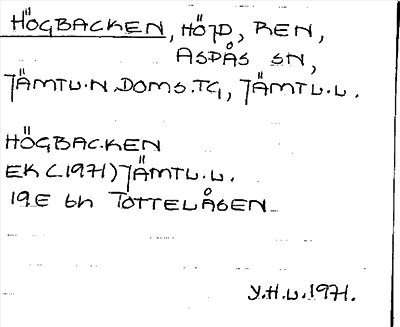 HÖGBACKEN, HÖJD, REN,
ASPÅS SN,
JÄMTL.N.DOMS.TG, JÄMTL.L.
HÖGBACKEN
EK (1971) JÄMTL.L.
19E 6h TOTTELÅSEN
Y.H.L.1971.